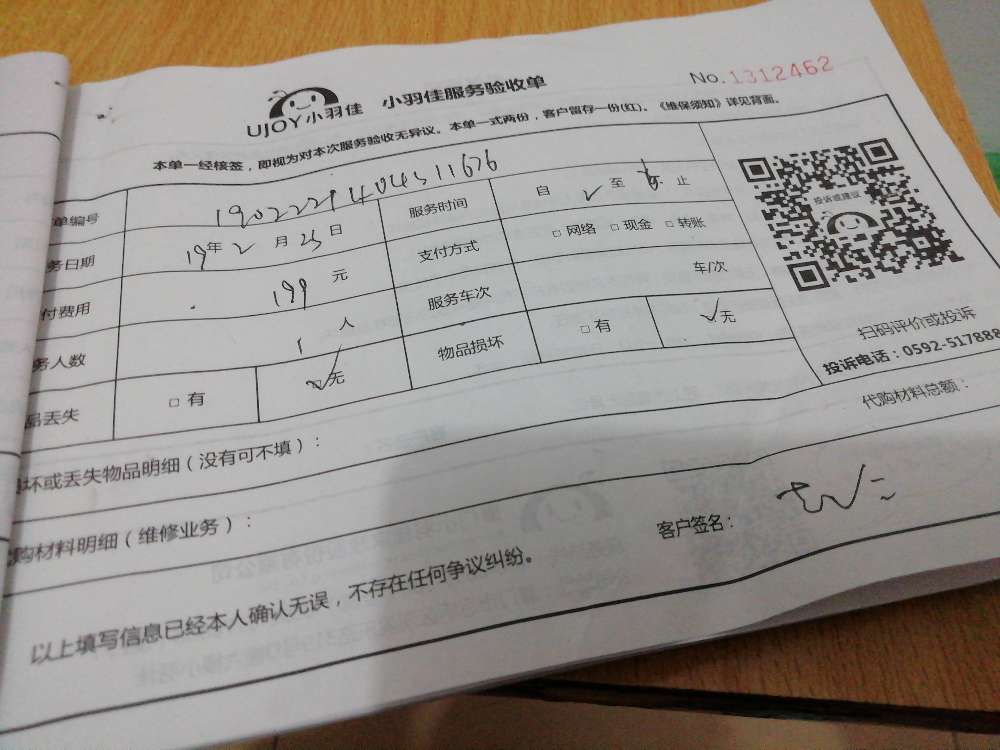 UJOY小羽佳 小羽佳服务验收单 No.1312462
本单一经核签，即视为对本次服务验收无异议。本单一式两份，客户留存一份(红)。《维保须知》详见背面。
单编号 服务时间 自 至 止
务日期 19年2月25日 支付方式 □网络 □现金 □转账
付费用 199元 服务车次 车/次
务人数 1人 物品损坏 □有 无
品丢失 □有 无
投诉或建议
扫码评价或投诉
投诉电话：0592-517888
坏或丢失物品明细（没有可不填）：
代购材料总额：
购材料明细（维修业务）：
客户签名：
以上填写信息已经本人确认无误，不存在任何争议纠纷。